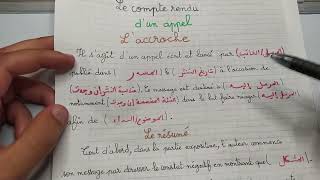 Le compte rendu
d'un appel
L'accroche
Il s'agit d'un appel écrit et lancé par (المرسل/الكاتب)
publié dans (المصدر) le (تاريخ النشر) à l'occasion de
(مناسبة النشر إن وجدت). Le message est destiné à (المرسل إليه)
notamment (المرسل إليه) dans le but faire réagir
afin de (الموضوع/النداء).
Le résumé
Tout d'abord, dans la partie expositive, l'auteur commence
son message par dresser le constat négatif en montrant que (المشكل)